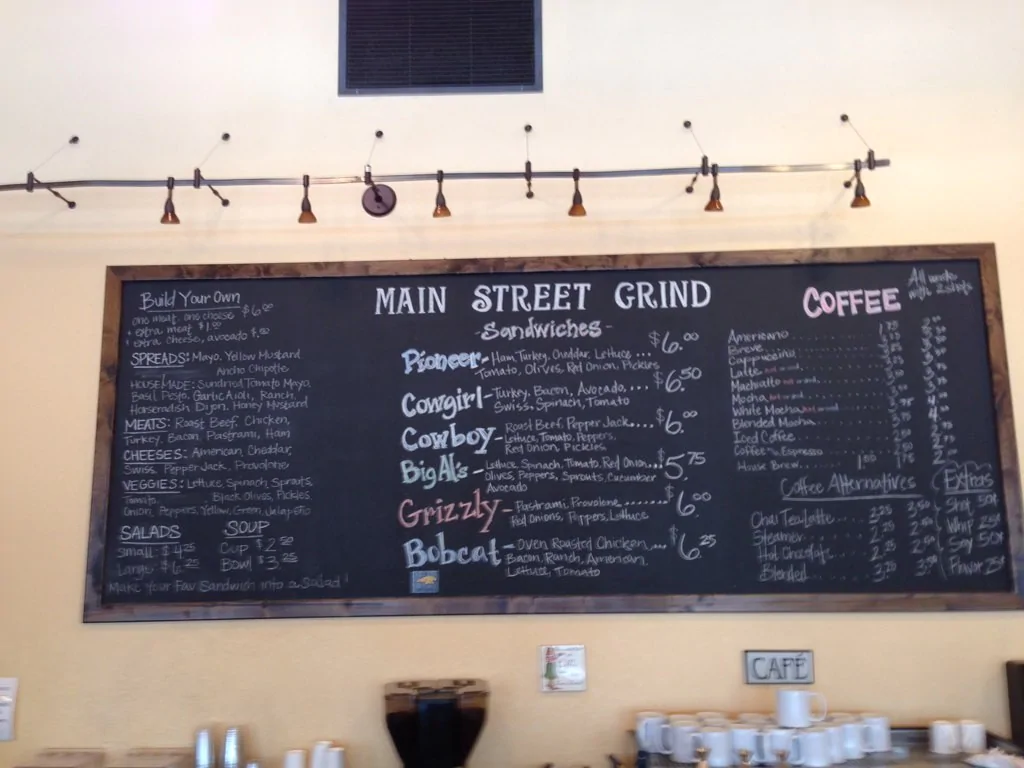 Build Your Own
one meat, one cheese $6.00
extra meat $1.00
extra cheese, avocado
SPREADS: Mayo, Yellow Mustard
Ancho Chipotle
HOUSEMADE: Sundried Tomato Mayo,
Basil Pesto, Garlic Aioli, Ranch,
Horseradish Dijon, Honey Mustard
MEATS: Roast Beef, Chicken,
Turkey, Bacon, Pastrami, Ham
CHEESES: American, Cheddar,
Swiss, Pepper Jack, Provolone
VEGGIES: Lettuce, Spinach, Sprouts,
Tomato, Black Olives, Pickles,
Onion, Peppers, Yellow, Green, Jalapeño
SALADS
Small $4.25
Large $6.25
SOUP
Cup $2.50
Bowl $3.25
Make Your Fav Sandwich into a Salad!
MAIN STREET GRIND
-Sandwiches-
Pioneer- Ham, Turkey, Cheddar, Lettuce... $6.00
Tomato, Olives, Red Onion, Pickles
Cowgirl- Turkey, Bacon, Avocado,... $6.50
Swiss, Spinach, Tomato
Cowboy- Roast Beef, Pepper Jack,.... $6.00
Lettuce, Tomato, Peppers,
Red Onion, Pickles
Big Al's- Lettuce, Spinach, Tomato, Red Onion... $5.75
Olives, Peppers, Sprouts, Cucumber
Avocado
Grizzly- Pastrami, Provolone....... $6.00
Red Onions, Peppers, Lettuce
Bobcat- Oven Roasted Chicken,... $6.25
Bacon, Ranch, American,
Lettuce, Tomato
COFFEE
All made
with 2 shots
Americano
Breve
Cappuccino
Latte
Machiatto
Mocha
White Mocha
Blended Mocha
Iced Coffee
Coffee Espresso
House Brew
Coffee Alternatives
Chai Tea Latte 2.25 3.50
Steamer
Hot Chocolate
Blended
Extras
Shot 50¢
Whip 25¢
Soy 50¢
Flavor 25¢
CAFÉ